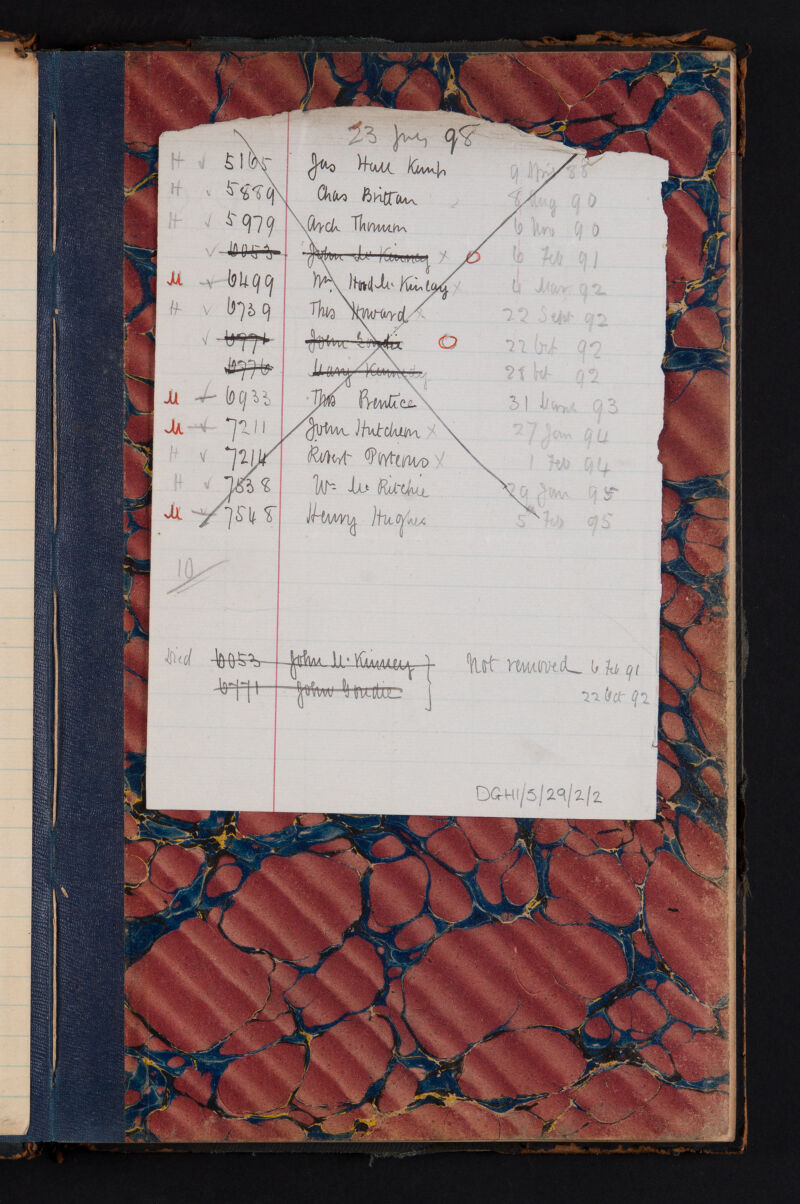 23 July 98
H √ 5165 Jas Hall Kemp 9 April 88
H 5889 Chas Brittan 8 Aug 90
H √ 5979 Arch Thomson 6 Nov 90
√ 6053 John McKinney × O 6 Feb 91
M √ 6499 Wm Hood McKinlay × 4 Mar 92
H √ 6739 Thos Howard × 22 Sept 92
√ 6771 John Goudie O 22 Oct 92
6776 Mary Kennedy 28 Oct 92
M 6933 Thos Prentice 31 March 93
M 7211 John Hutcheon × 27 Jan 94
H √ 7214 Robert Porteous × 1 Feb 94
H √ 7538 Wm McRitchie 29 Jan 95
M 7548 Henry Hughes 5 Feb 95
10
Died 6053 John McKinney } Not removed 6 Feb 91
6771 John Goudie } 22 Oct 92
DGH1/5/29/2/2